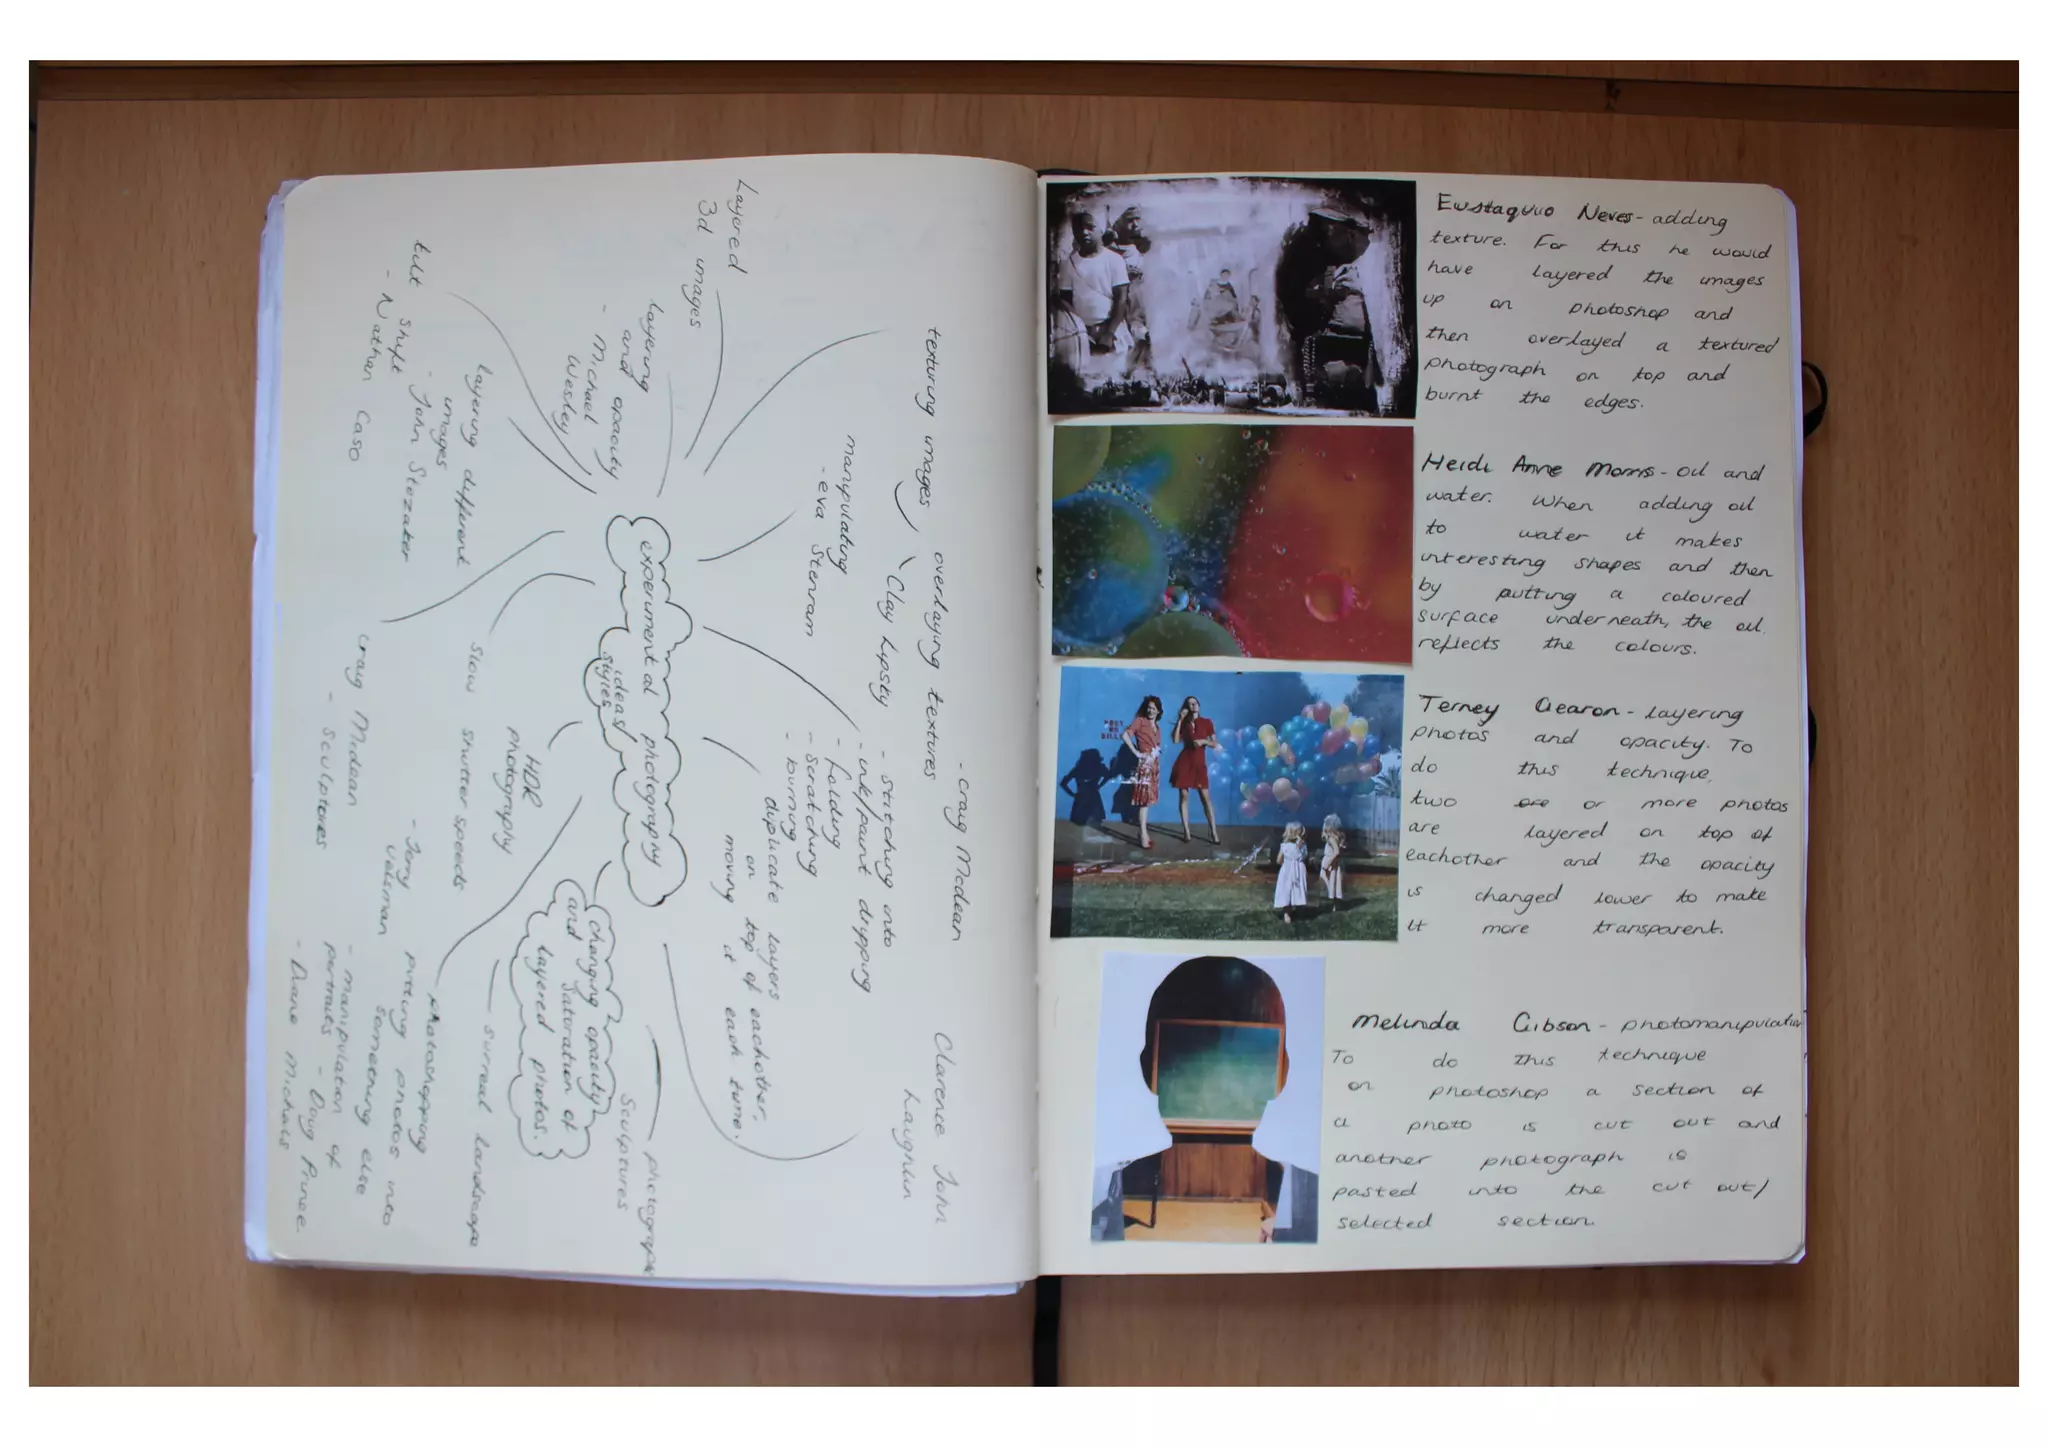 Layered
3d images
layering
and opacity
- Michael
Wesley
tilt shift
- Nathan Caso
layering different
images
- John Stezaker
texturing images
overlaying textures
- Craig Mcdean
- Clay Lipsky
manipulating
- eva Stenram
- stitching into
- ink/paint dripping
- folding
- Scratching
- burning
duplicate layers
on top of eachother,
moving it each time.
Clarence John
Laughlin
experimental photography
ideas/
styles
Craig Mcdean
- Sculptures
slow shutter speeds
HDR
photography
changing opacity
and Saturation of
layered photos.
photograph
Sculptures
surreal landscapes
- photoshopping
- Jerry
Uelsman
putting photos into
something else
- manipulation of
portraits - Doug Prince
- Duane Michals
Eustaquio Neves - adding
texture. For this he would
have layered the images
up on photoshop and
then overlayed a textured
photograph on top and
burnt the edges.
Heidi Anne Morris - oil and
water. When adding oil
to water it makes
interesting shapes and then
by putting a coloured
surface underneath, the oil
reflects the colours.
POST
NO
BILLS
Terney Gearon - Layering
photos and opacity. To
do this technique,
two or more photos
are layered on top of
eachother and the opacity
is changed lower to make
it more transparent.
Melinda Gibson - photomanipulation
To do this technique
on photoshop a section of
a photo is cut out and
another photograph is
pasted into the cut out/
selected section.